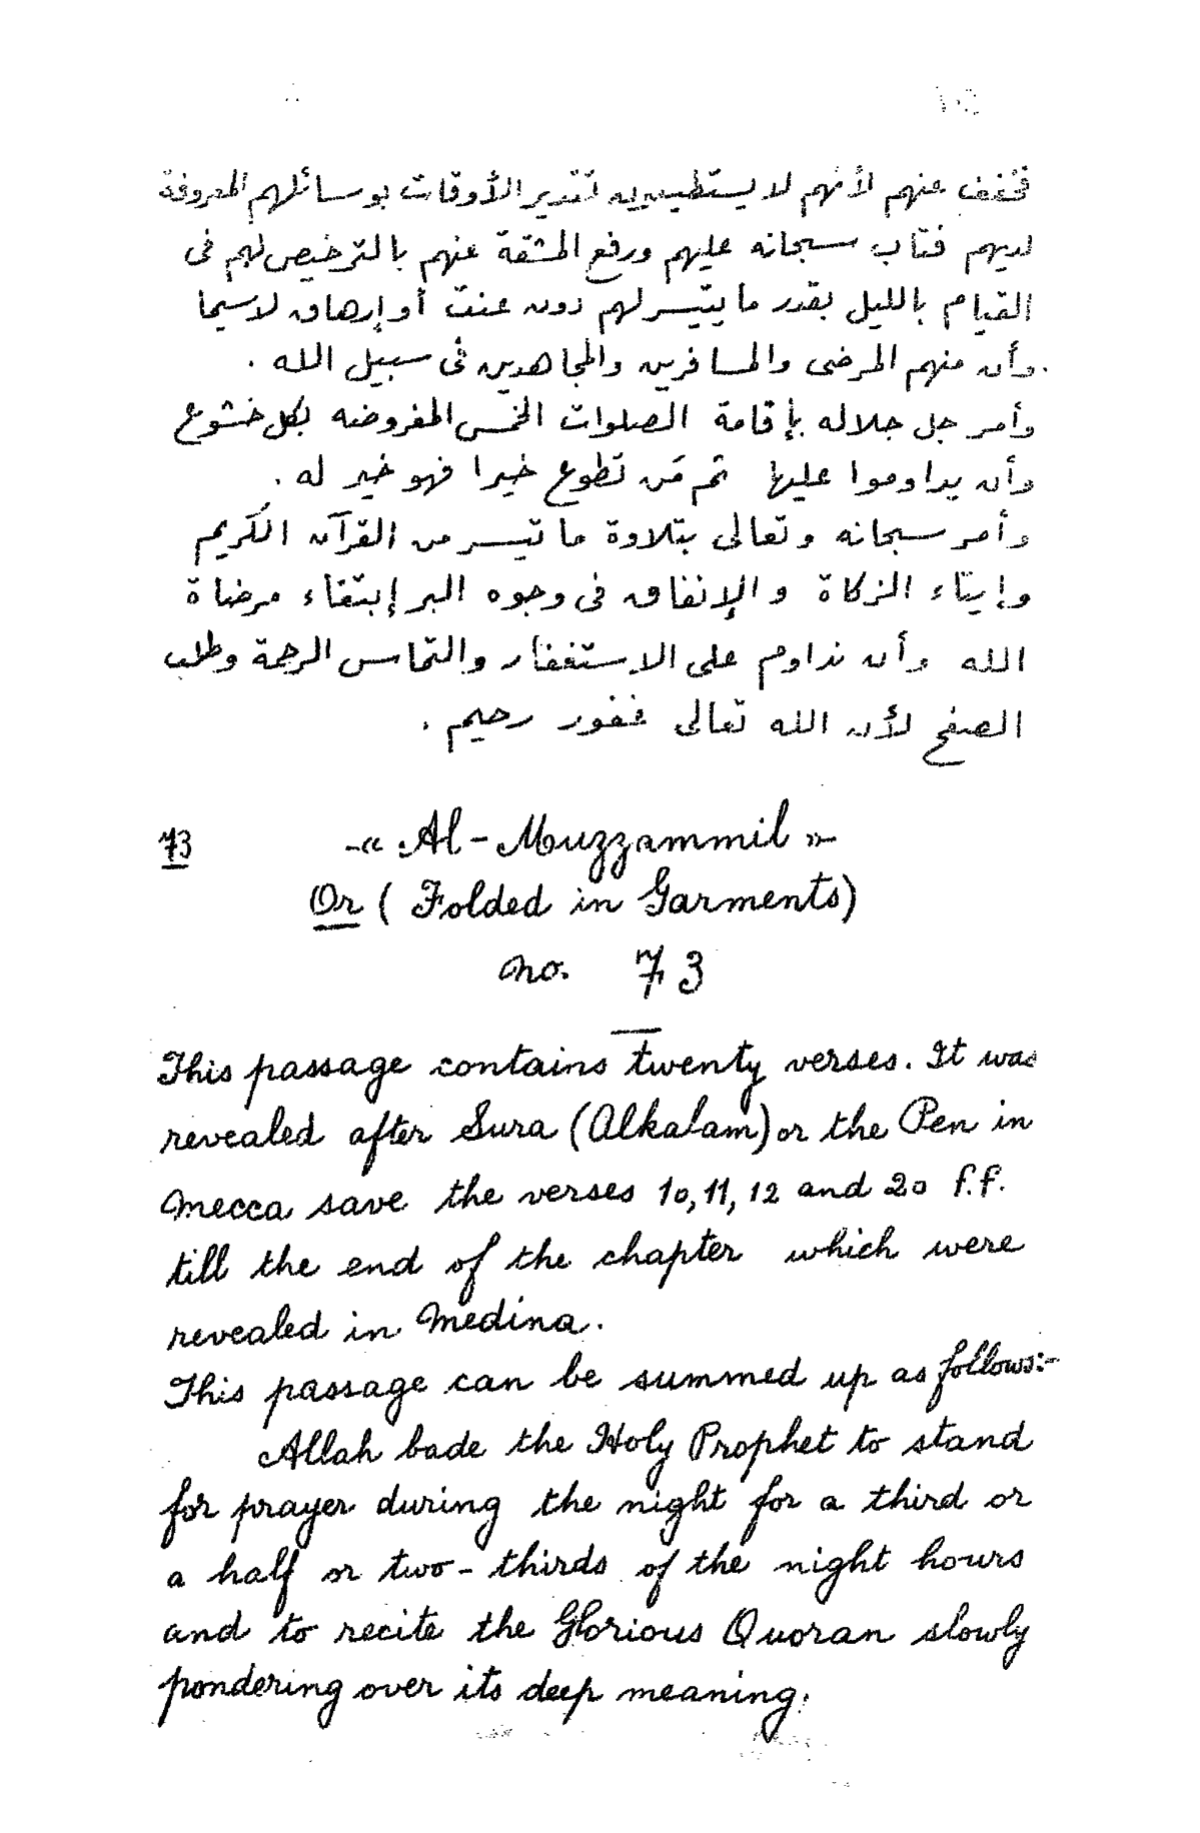 فخفف عنهم لأنهم لا يستطيعون تقدير الأوقات بوسائلهم المعروفة
لديهم فتاب سبحانه عليهم ورفع المشقة عنهم بالترخيص لهم فى
القيام بالليل بقدر ما يتيسر لهم دون عنت أو إرهاق لاسيما
وأن منهم المرضى والمسافرين والمجاهدين فى سبيل الله .
وأمر جل جلاله بإقامة الصلوات الخمس المفروضه بكل خشوع
وأن يداوموا عليها ثم مَن تطوع خيرا فهو خير له .
وأمر سبحانه وتعالى بتلاوة ما تيسر من القرآن الكريم
وإيتاء الزكاة والإنفاق فى وجوه البر إبتغاء مرضاة
الله وأن نداوم على الاستغفار والتماس الرحمة وطلب
الصفح لأن الله تعالى غفور رحيم .
73 -« Al-Muzzammil »-
Or ( Folded in Garments)
no. 73
This passage contains twenty verses. It was
revealed after Sura (Alkalam) or the Pen in
Mecca save the verses 10, 11, 12 and 20 f.f.
till the end of the chapter which were
revealed in Medina.
This passage can be summed up as follows:-
Allah bade the Holy Prophet to stand
for prayer during the night for a third or
a half or two-thirds of the night hours
and to recite the Glorious Quoran slowly
pondering over its deep meaning.